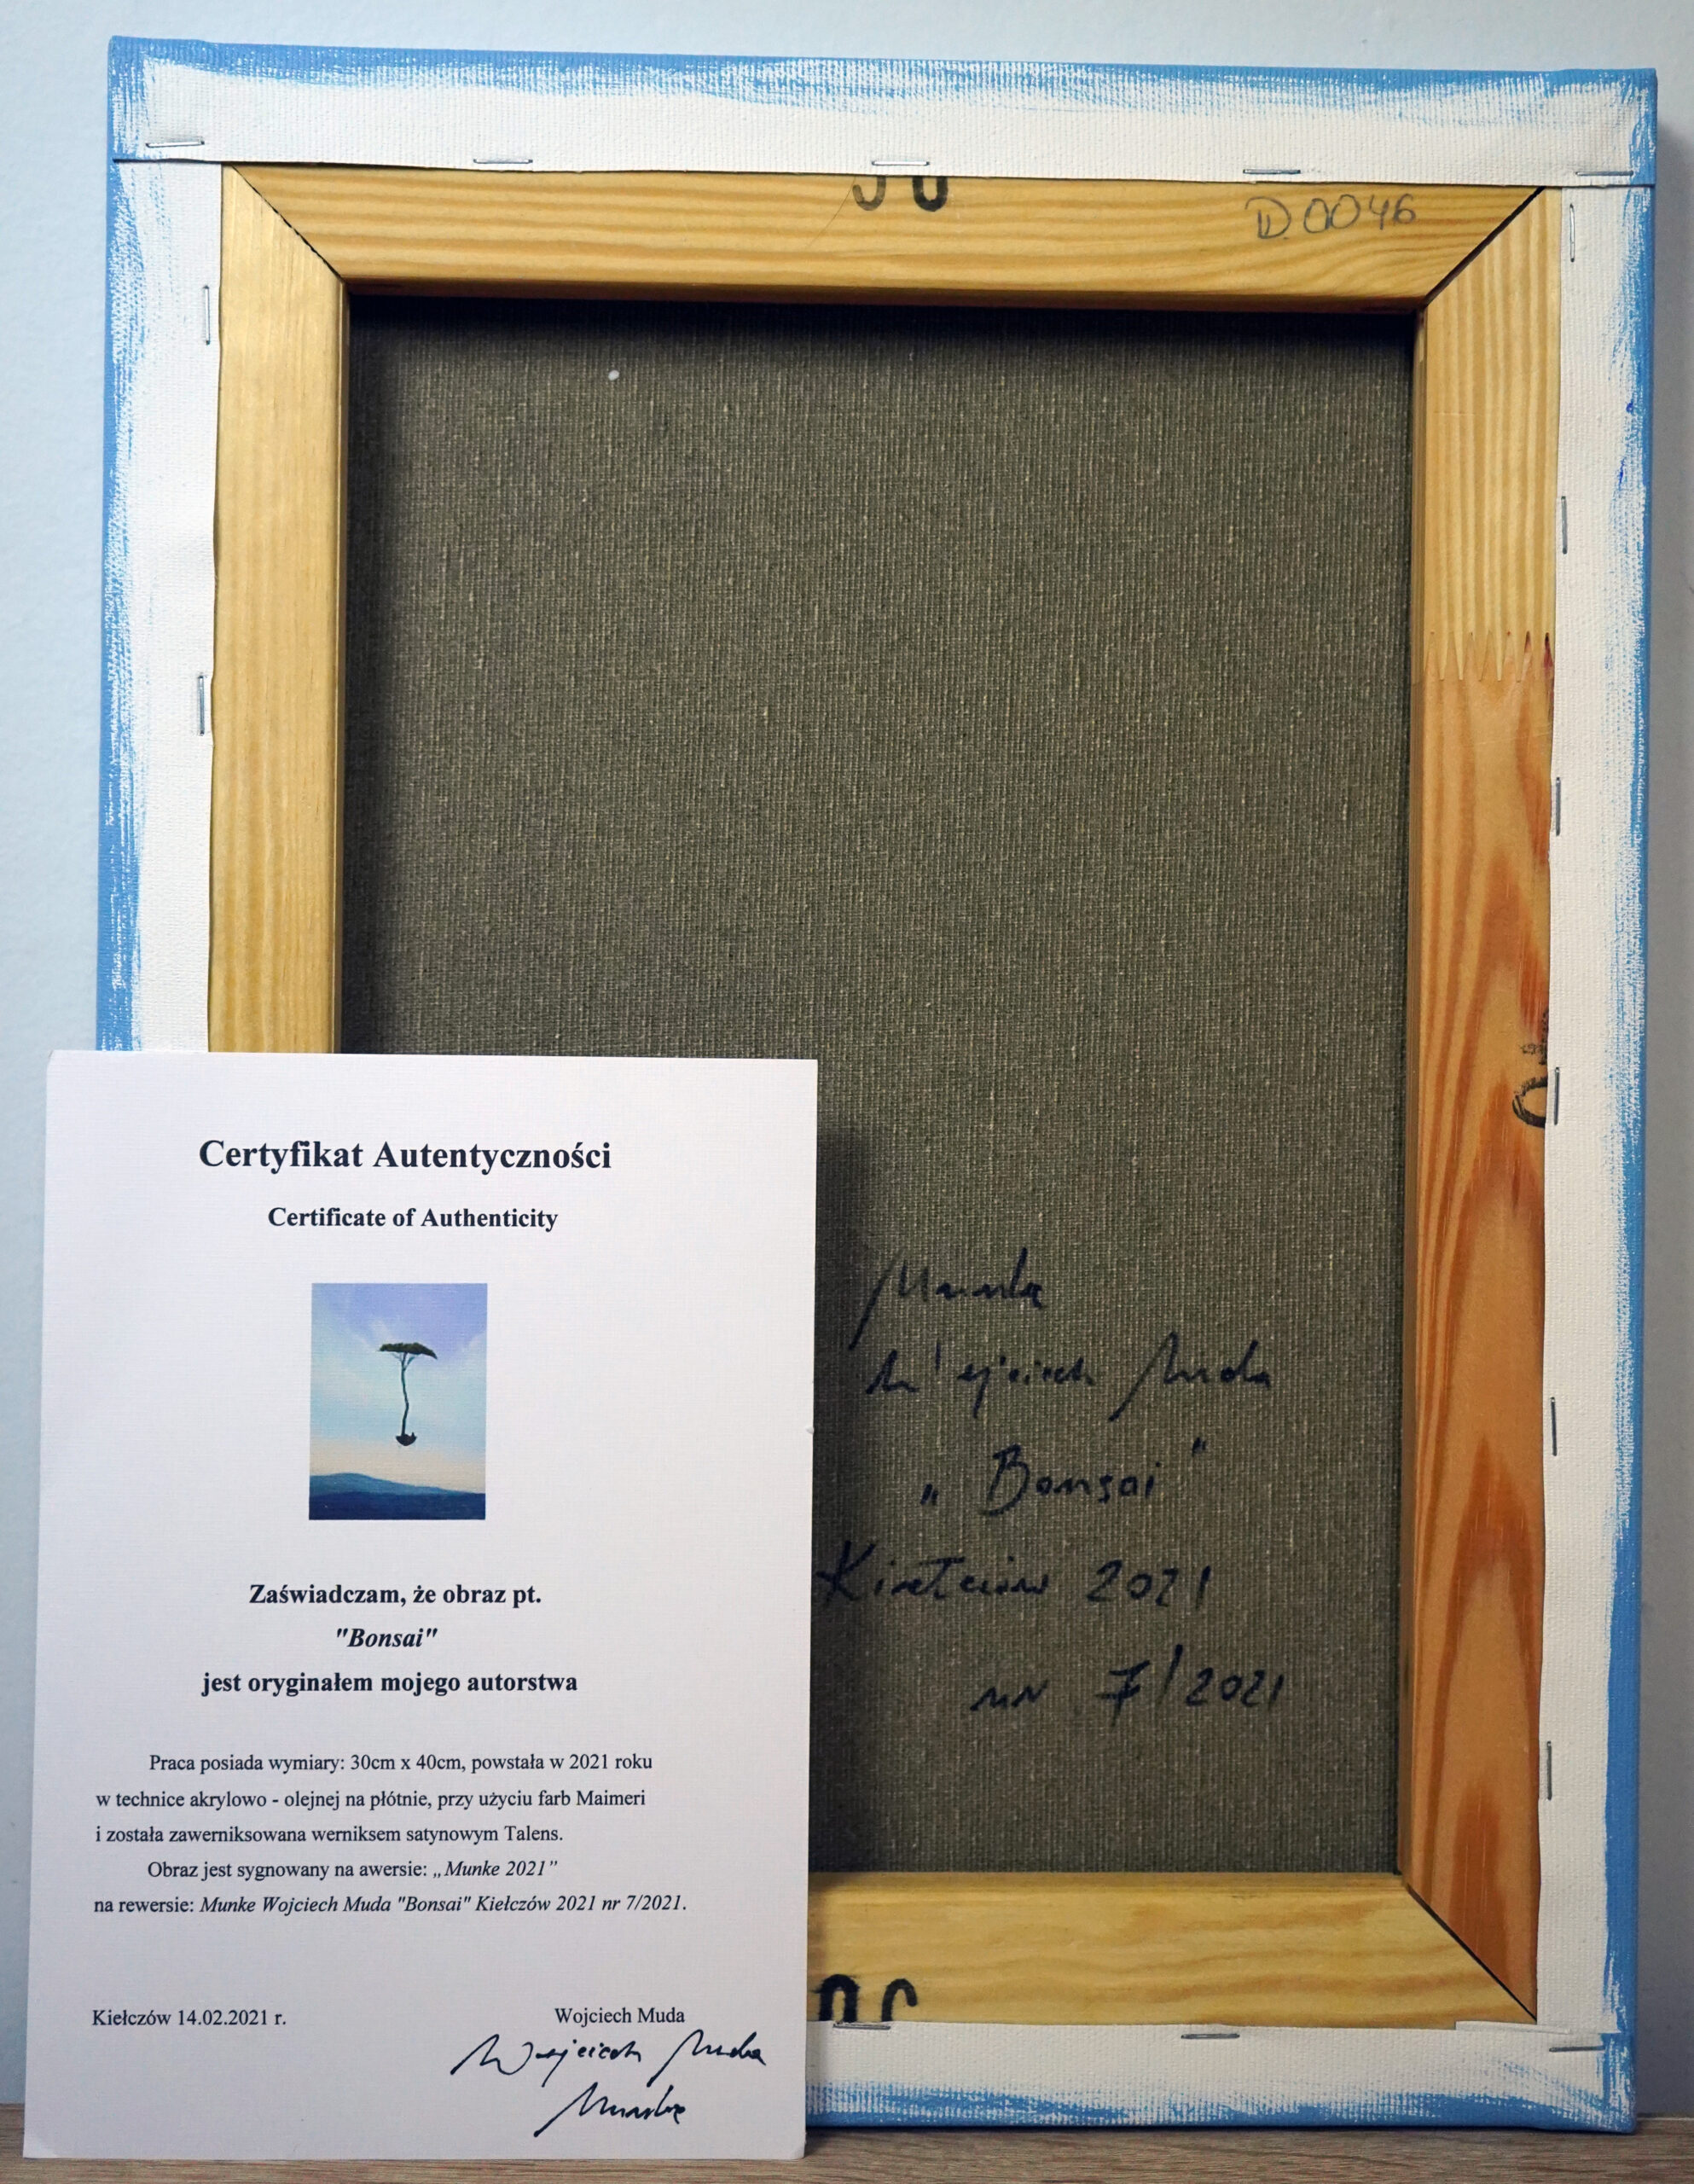 D0046
Certyfikat Autentyczności
Certificate of Authenticity
Zaświadczam, że obraz pt.
"Bonsai"
jest oryginałem mojego autorstwa
Praca posiada wymiary: 30cm x 40cm, powstała w 2021 roku
w technice akrylowo - olejnej na płótnie, przy użyciu farb Maimeri
i została zawerniksowana werniksem satynowym Talens.
Obraz jest sygnowany na awersie: „Munke 2021”
na rewersie: Munke Wojciech Muda "Bonsai" Kiełczów 2021 nr 7/2021.
Kiełczów 14.02.2021 r.
Wojciech Muda
Wojciech Muda
Munke
Munke
Wojciech Muda
„Bonsai"
Kiełczów 2021
nr 7/2021